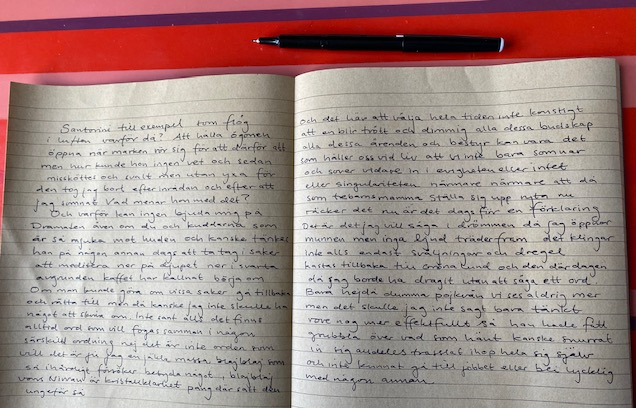 Santorini till exempel som flög
i luften varför då? Att hålla ögonen
öppna när marken rör sig för att därför att
men hur kunde hon ingen vet och sedan
missköttes och svalt men utan yxa för
den tog jag bort efter inrådan och efter att
jag somnat vad menar hon med det?
Och varför kan ingen bjuda mig på
Dramaten även om du och kuddarna som
är så mjuka mot huden och kanske tänkes
han på någon annan dags att ta tag i saker
att meditera ner på djupet ner i svarta
avgrunden kaffet har kallnat börja om
Om man kunde göra om vissa saker gå tillbaka
och rätta till men då kanske jag inte skulle ha
något att skriva om. Inte sant alls det finns
alltid ord som vill fogas samman i någon
särskild ordning nej det är inte orden som
vill det är jag en jäkla massa blajblaj som
så ihärdigt försöker betyda något, blajblaj
vems Niman är kristallklarhet pang där satt den
ungefär så
Och det här att välja hela tiden inte konstigt
att en blir trött och dimmig alla dessa budskap
alla dessa ärenden och bestyr kan vara det
som håller oss vid liv att vi inte bara somnar
och sover vidare in i evigheten eller intet
eller singulariteten närmare närmare att då
som tvåbarnsmamma ställa sig upp nyta nu
räcker det nu är det dags för en förklaring
Det är det jag vill säga i drömmen då jag öppnar
munnen men inga ljud träder fram det klingar
inte alls endast sväljningar och dregel
kastas tillbaka till Cronakund och den där dagen
då jag borde ha dragit utan att säga ett ord
Bara hejdå dumma pojkvän vi ses aldrig mer
men det skulle jag inte sagt bara tänkt
vore nog mer effektfullt så han hade fått
grubbla över vad som hänt kanske snurrat
in sig alldeles trasslat ihop hela sig själv
och inte kunnat gå till jobbet eller bli lycklig
med någon annan.